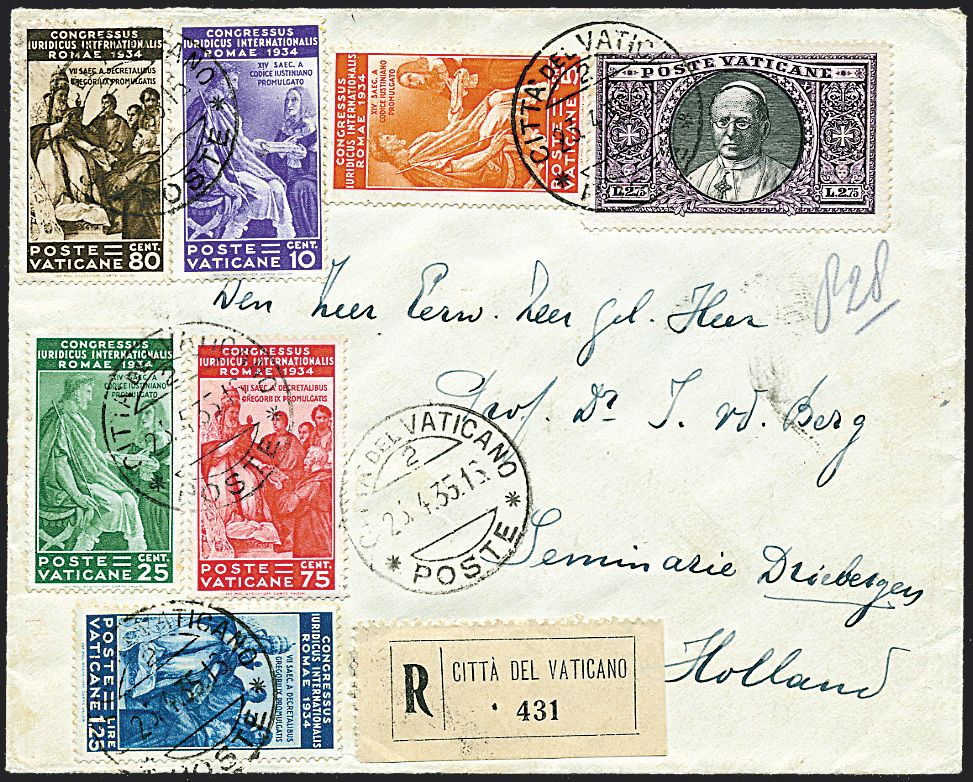 CONGRESSUS
IURIDICUS INTERNATIONALIS
ROMAE 1934
VII SAEC. A DECRETALIBUS
GREGORII IX PROMULGATIS
POSTE CENT.
VATICANE 80
CONGRESSUS
IURIDICUS INTERNATIONALIS
ROMAE 1934
XIV SAEC. A
CODICE IUSTINIANO
PROMULGATO
POSTE CENT.
VATICANE 10
CONGRESSUS
IURIDICUS INTERNATIONALIS
ROMAE 1934
XIV SAEC. A
CODICE IUSTINIANO
PROMULGATO
POSTE
VATICANE 5
CITTÀ DEL VATIC
2
POSTE VATICANE
L.2.75 L.2.75
828
Den Heer Eerw. Heer gel. Heer
Prof. Dr. J. vd. Berg
Seminarie Driebergen
Holland
CONGRESSUS
IURIDICUS INTERNATIONALIS
ROMAE 1934
XIV SAEC. A
CODICE IUSTINIANO
PROMULGATO
POSTE CENT.
VATICANE 25
CONGRESSUS
IURIDICUS INTERNATIONALIS
ROMAE 1934
VII SAEC. A DECRETALIBUS
GREGORII IX PROMULGATIS
POSTE CENT.
VATICANE 75
DEL VATICANO
2
23.4.35.13
* POSTE *
CONGRESSUS
IURIDICUS INTERNATIONALIS
ROMAE 1934
VII SAEC. A DECRETALIBUS
GREGORII IX PROMULGATIS
POSTE LIRE
VATICANE 1,25
VATICANO
2
POSTE
R CITTÀ DEL VATICANO
431